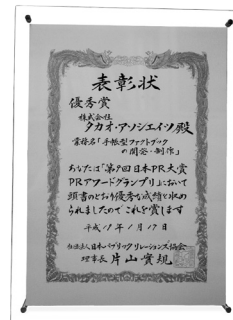 表彰状
優秀賞
株式会社
タカオ・アソシエイツ殿
業務名「手帳型ファクトブック
の開発・制作」
あなたは「第9回日本PR大賞
PRアワードグランプリ」において
頭書のとおり優秀な成績を収め
られましたのでこれを賞します
平成18年1月17日
社団法人日本パブリックリレーションズ協会
理事長 片山實規